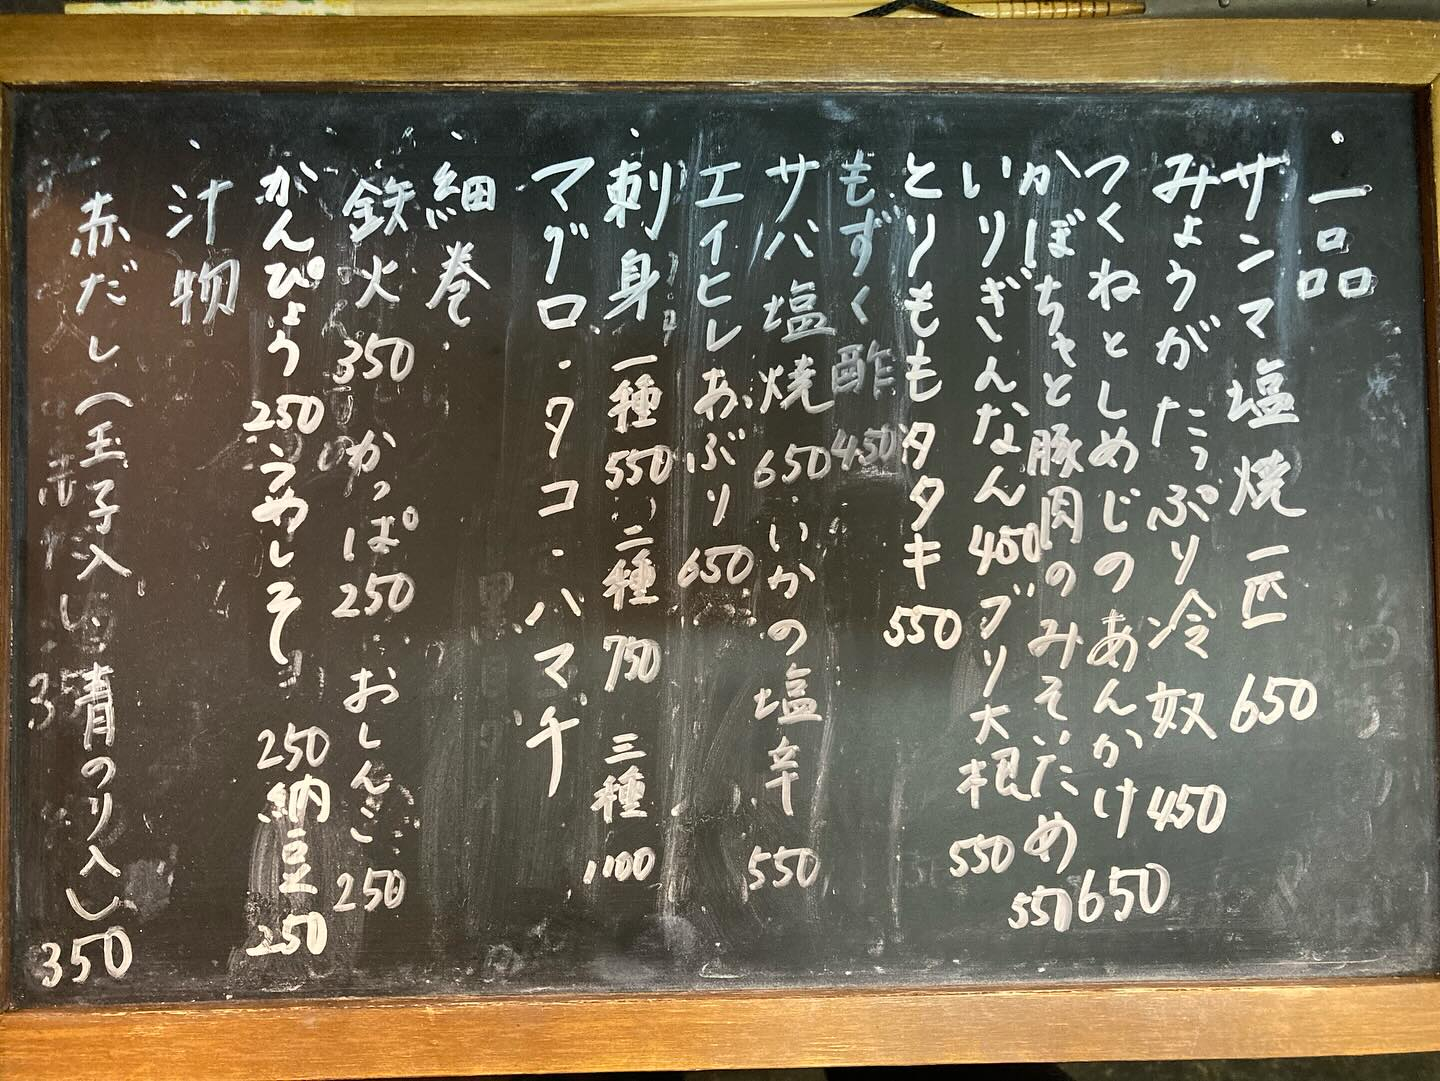 ・一品
サンマ塩焼一匹 650
みょうがたっぷり冷奴 450
つくねとしめじのあんかけ 650
かぼちゃと豚肉のみそいため 550
いりぎんなん 450 ブリ大根 550
とりももタタキ 550
もずく酢 450
サバ塩焼 650・いかの塩辛 550
エイヒレあぶり 650
・刺身 一種 550、二種 750 三種 1100
マグロ・タコ・ハマチ
・細巻
鉄火 350 かっぱ 250 おしんこ 250
かんぴょう 250 うめしそ 250 納豆 250
・汁物
赤だし(玉子入り、青のり入り) 350